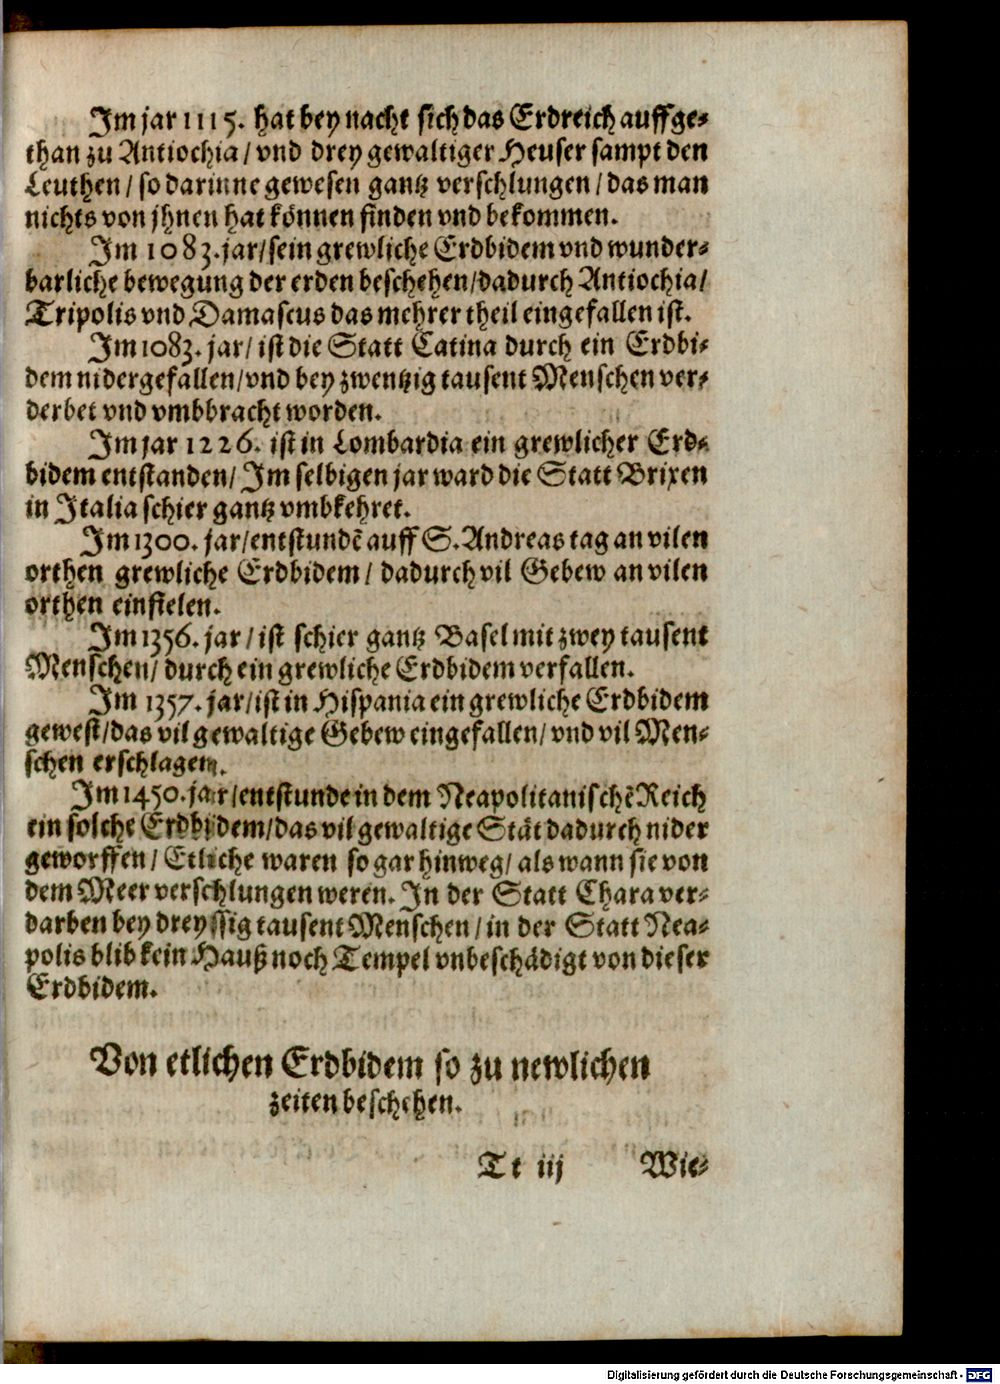 Im jar 1115. hat bey nacht sich das Erdreich auffge-
than zu Antiochia / vnd drey gewaltiger Heuser sampt den
Leuthen / so darinne gewesen gantz verschlungen / das man
nichts von jhnen hat können finden vnd bekommen.
Im 1083. jar / sein grewliche Erdbidem vnd wunder-
barliche bewegung der erden beschehen / dadurch Antiochia /
Tripolis vnd Damascus das mehrer theil eingefallen ist.
Im 1083. jar / ist die Statt Catina durch ein Erdbi-
dem nidergefallen / vnd bey zwentzig tausent Menschen ver-
derbet vnd vmbbracht worden.
Im jar 1226. ist in Lombardia ein grewlicher Erd-
bidem entstanden / Im selbigen jar ward die Statt Brixen
in Italia schier gantz vmbkehret.
Im 1300. jar / entstundē auff S. Andreas tag an vilen
orthen grewliche Erdbidem / dadurch vil Gebew an vilen
orthen einfielen.
Im 1356. jar / ist schier gantz Basel mit zwey tausent
Menschen / durch ein grewliche Erdbidem verfallen.
Im 1357. jar / ist in Hispania ein grewliche Erdbidem
gewest / das vil gewaltige Gebew eingefallen / vnd vil Men-
schen erschlagen.
Im 1450. jar / entstunde in dem Neapolitanischē Reich
ein solche Erdbidem / das vil gewaltige Stät dadurch nider
geworffen / Etliche waren so gar hinweg / als wann sie von
dem Meer verschlungen weren. In der Statt Chara ver-
darben bey dreyssig tausent Menschen / in der Statt Nea-
polis blib kein Hauß noch Tempel vnbeschädigt von dieser
Erdbidem.
Von etlichen Erdbidem so zu newlichen
zeiten beschehen.
Tt iij Wie-
Digitalisierung gefördert durch die Deutsche Forschungsgemeinschaft - DFG